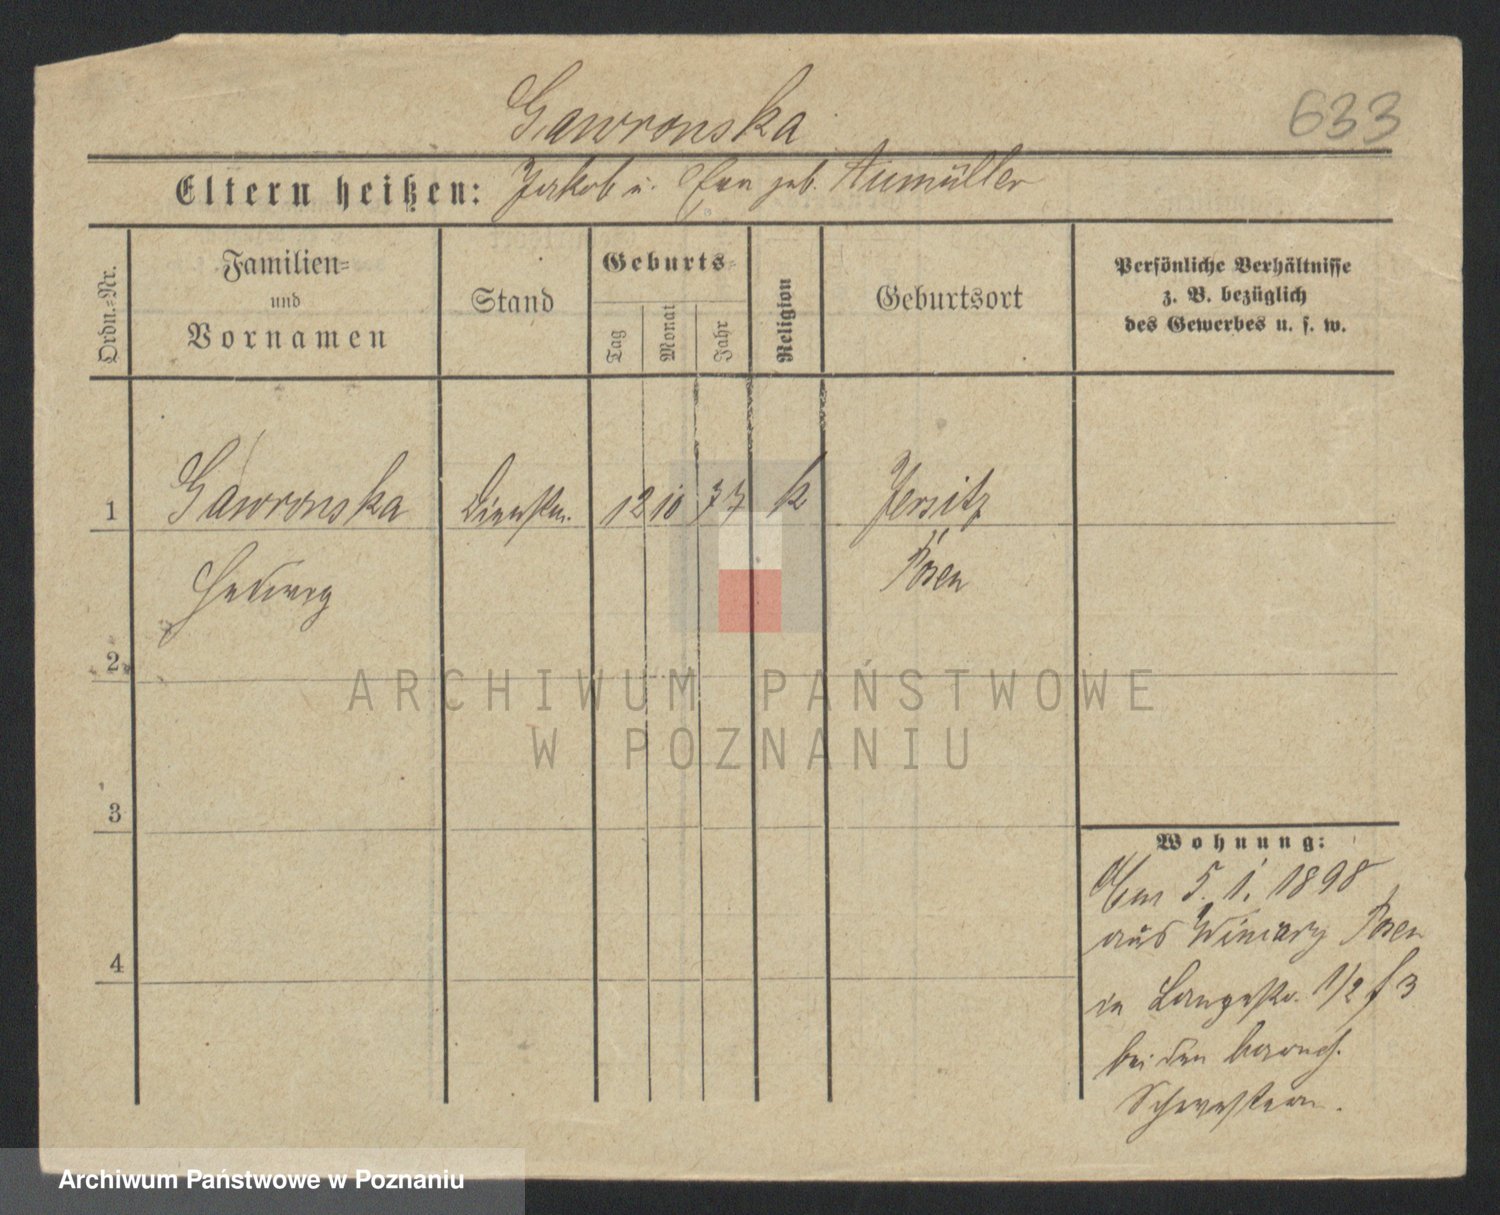 Gawronska
633
Eltern heißen: Jakob u. Eva geb. Aumüller
Ordn.=Nr.
Familien=
und
Vornamen
Stand
Geburts=
Tag
Monat
Jahr
Religion
Geburtsort
Persönliche Verhältnisse
z. B. bezüglich
des Gewerbes u. s. w.
1 Gawronska 12 10 77 k Jersitz
Hedwig Posen
2
3
4
Wohnung:
5. 1. 1898
aus Winiary Posen
in Langestr. 1/2
bei den barmh.
Schwestern.
ARCHIWUM PAŃSTWOWE
W POZNANIU
Archiwum Państwowe w Poznaniu